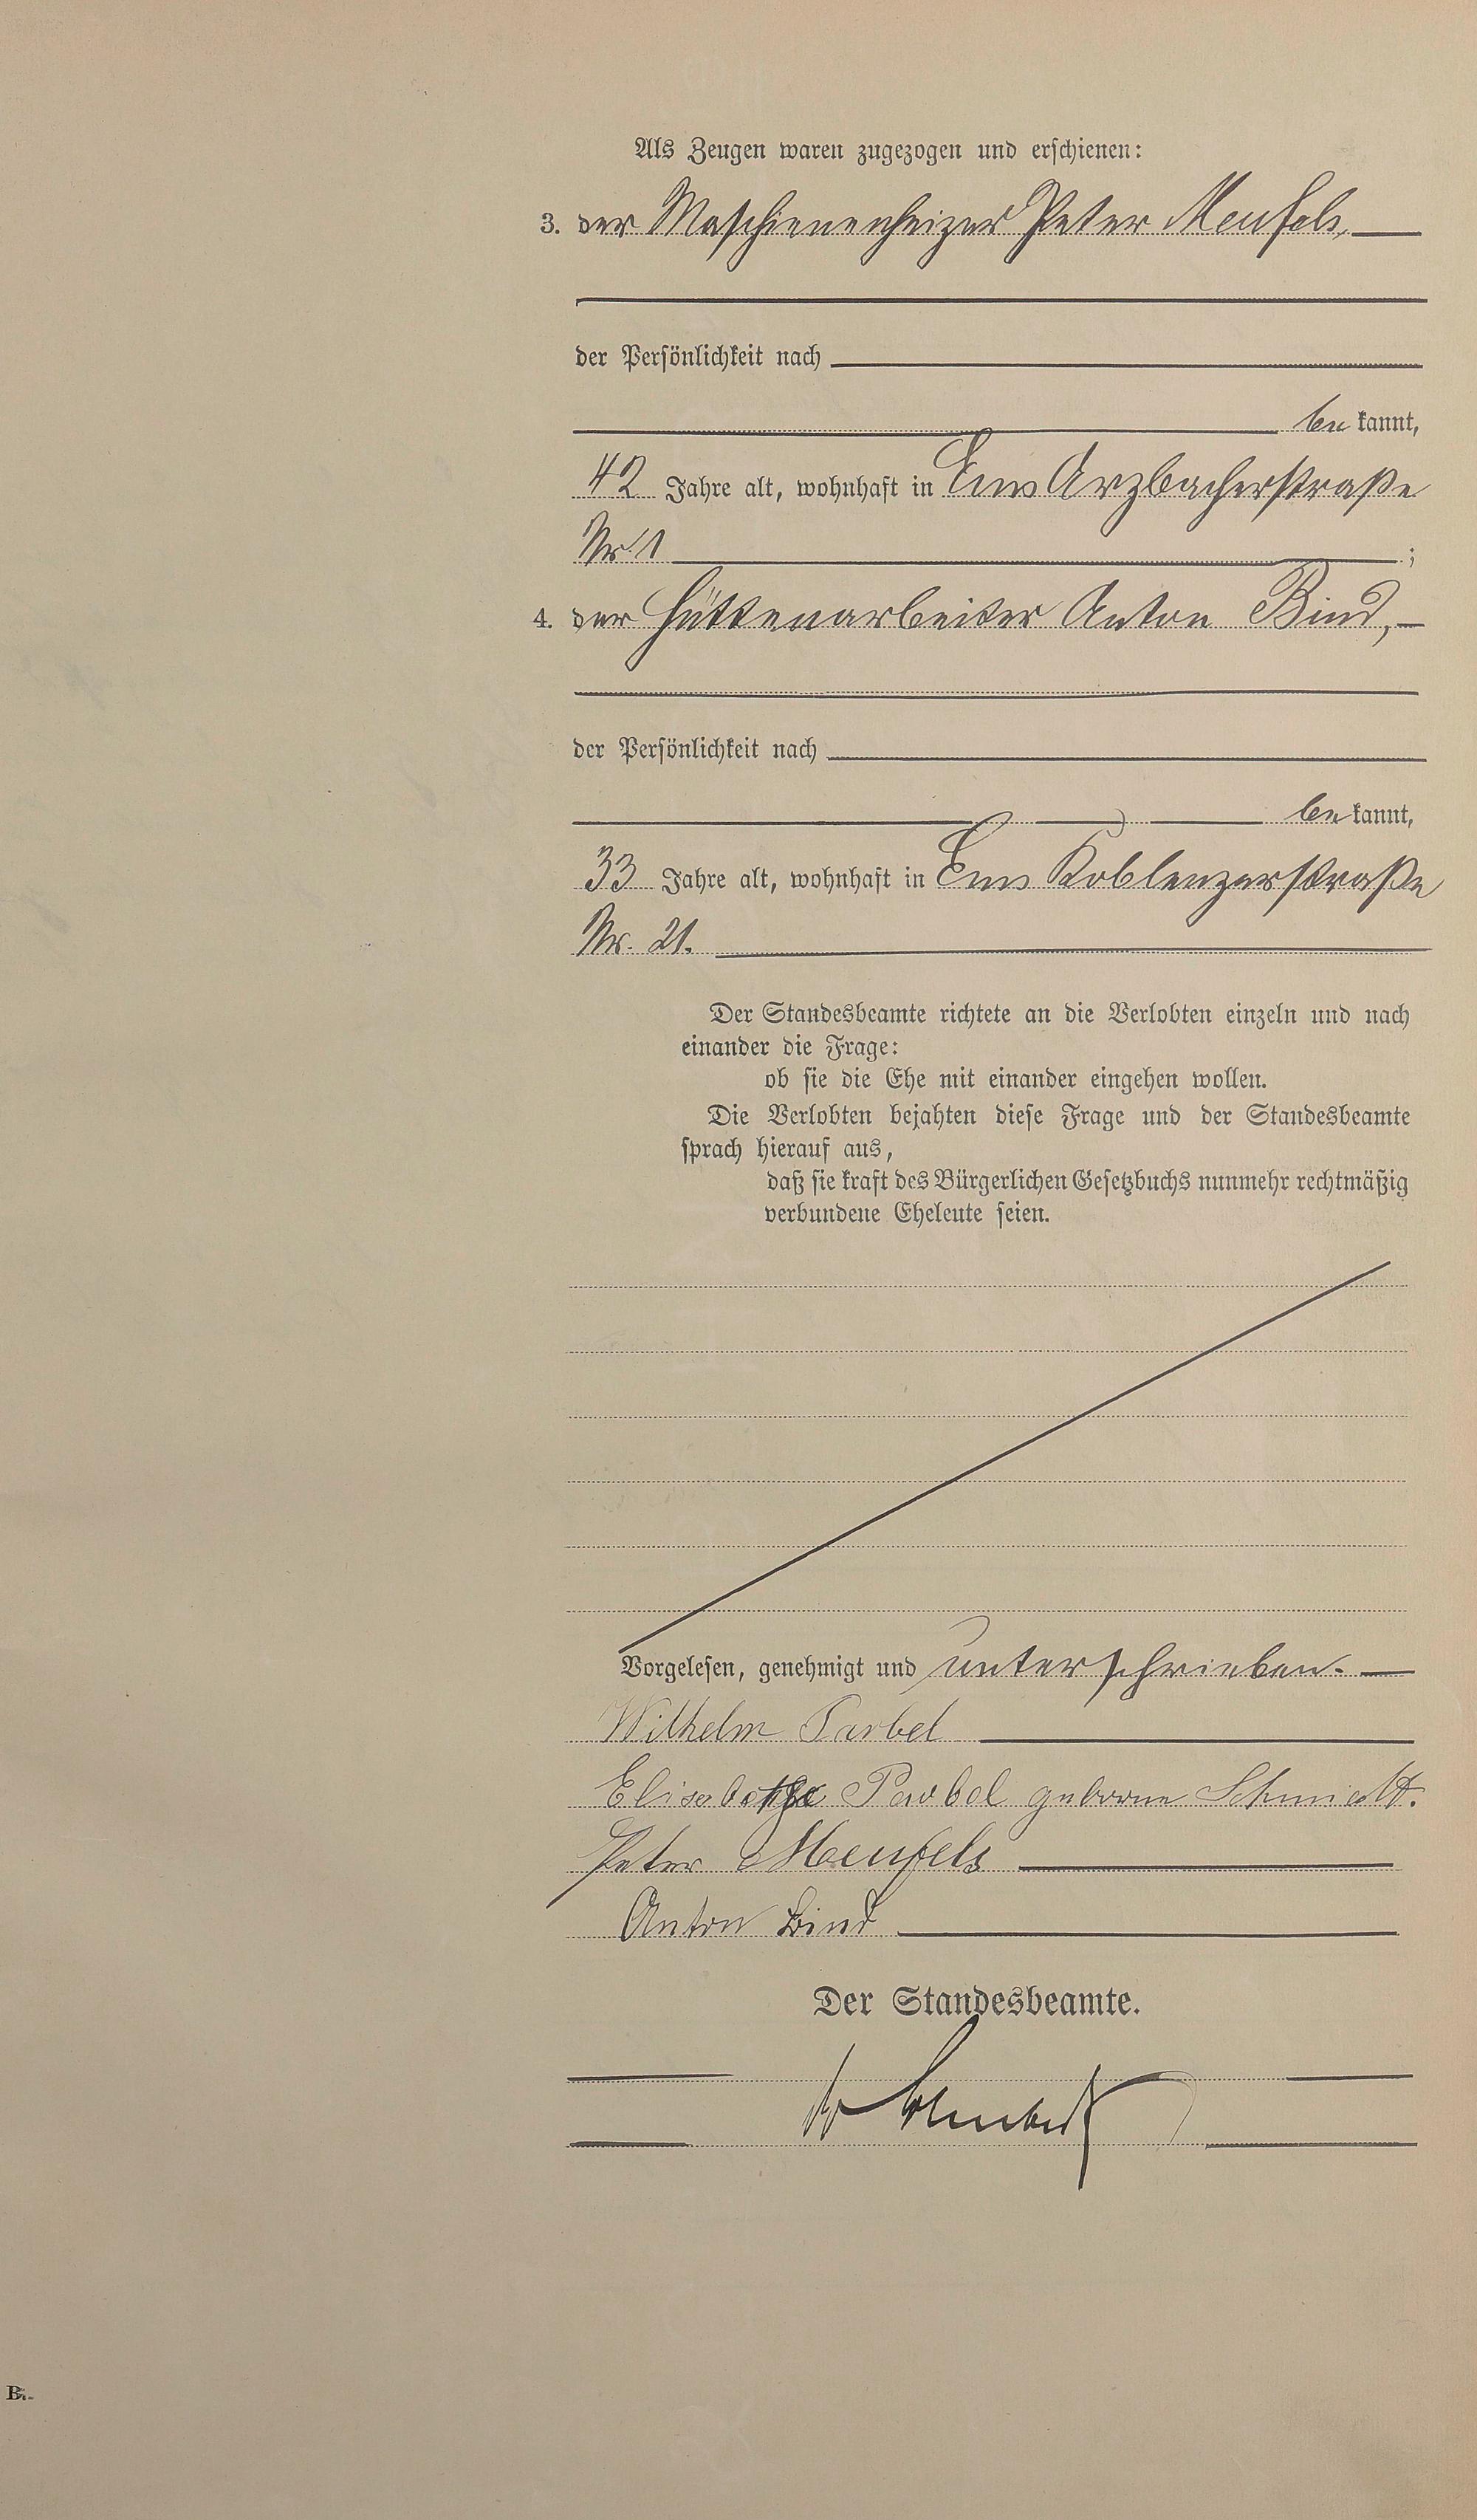 Als Zeugen waren zugezogen und erschienen:
3. der Maschienenheizer Peter Meufels,
der Persönlichkeit nach
bekannt,
42 Jahre alt, wohnhaft in Ems Arzbacherstraße
Nr. 1 ;
4. der Hüttenarbeiter Anton Bind,
der Persönlichkeit nach
bekannt,
33 Jahre alt, wohnhaft in Ems Koblenzerstraße
Nr. 21.
Der Standesbeamte richtete an die Verlobten einzeln und nach
einander die Frage:
ob sie die Ehe mit einander eingehen wollen.
Die Verlobten bejahten diese Frage und der Standesbeamte
sprach hierauf aus,
daß sie kraft des Bürgerlichen Gesetzbuchs nunmehr rechtmäßig
verbundene Eheleute seien.
Vorgelesen, genehmigt und unterschrieben.
Wilhelm
geborne Schmidt.
Peter Meufels
Anton Bind
Der Standesbeamte.
B.